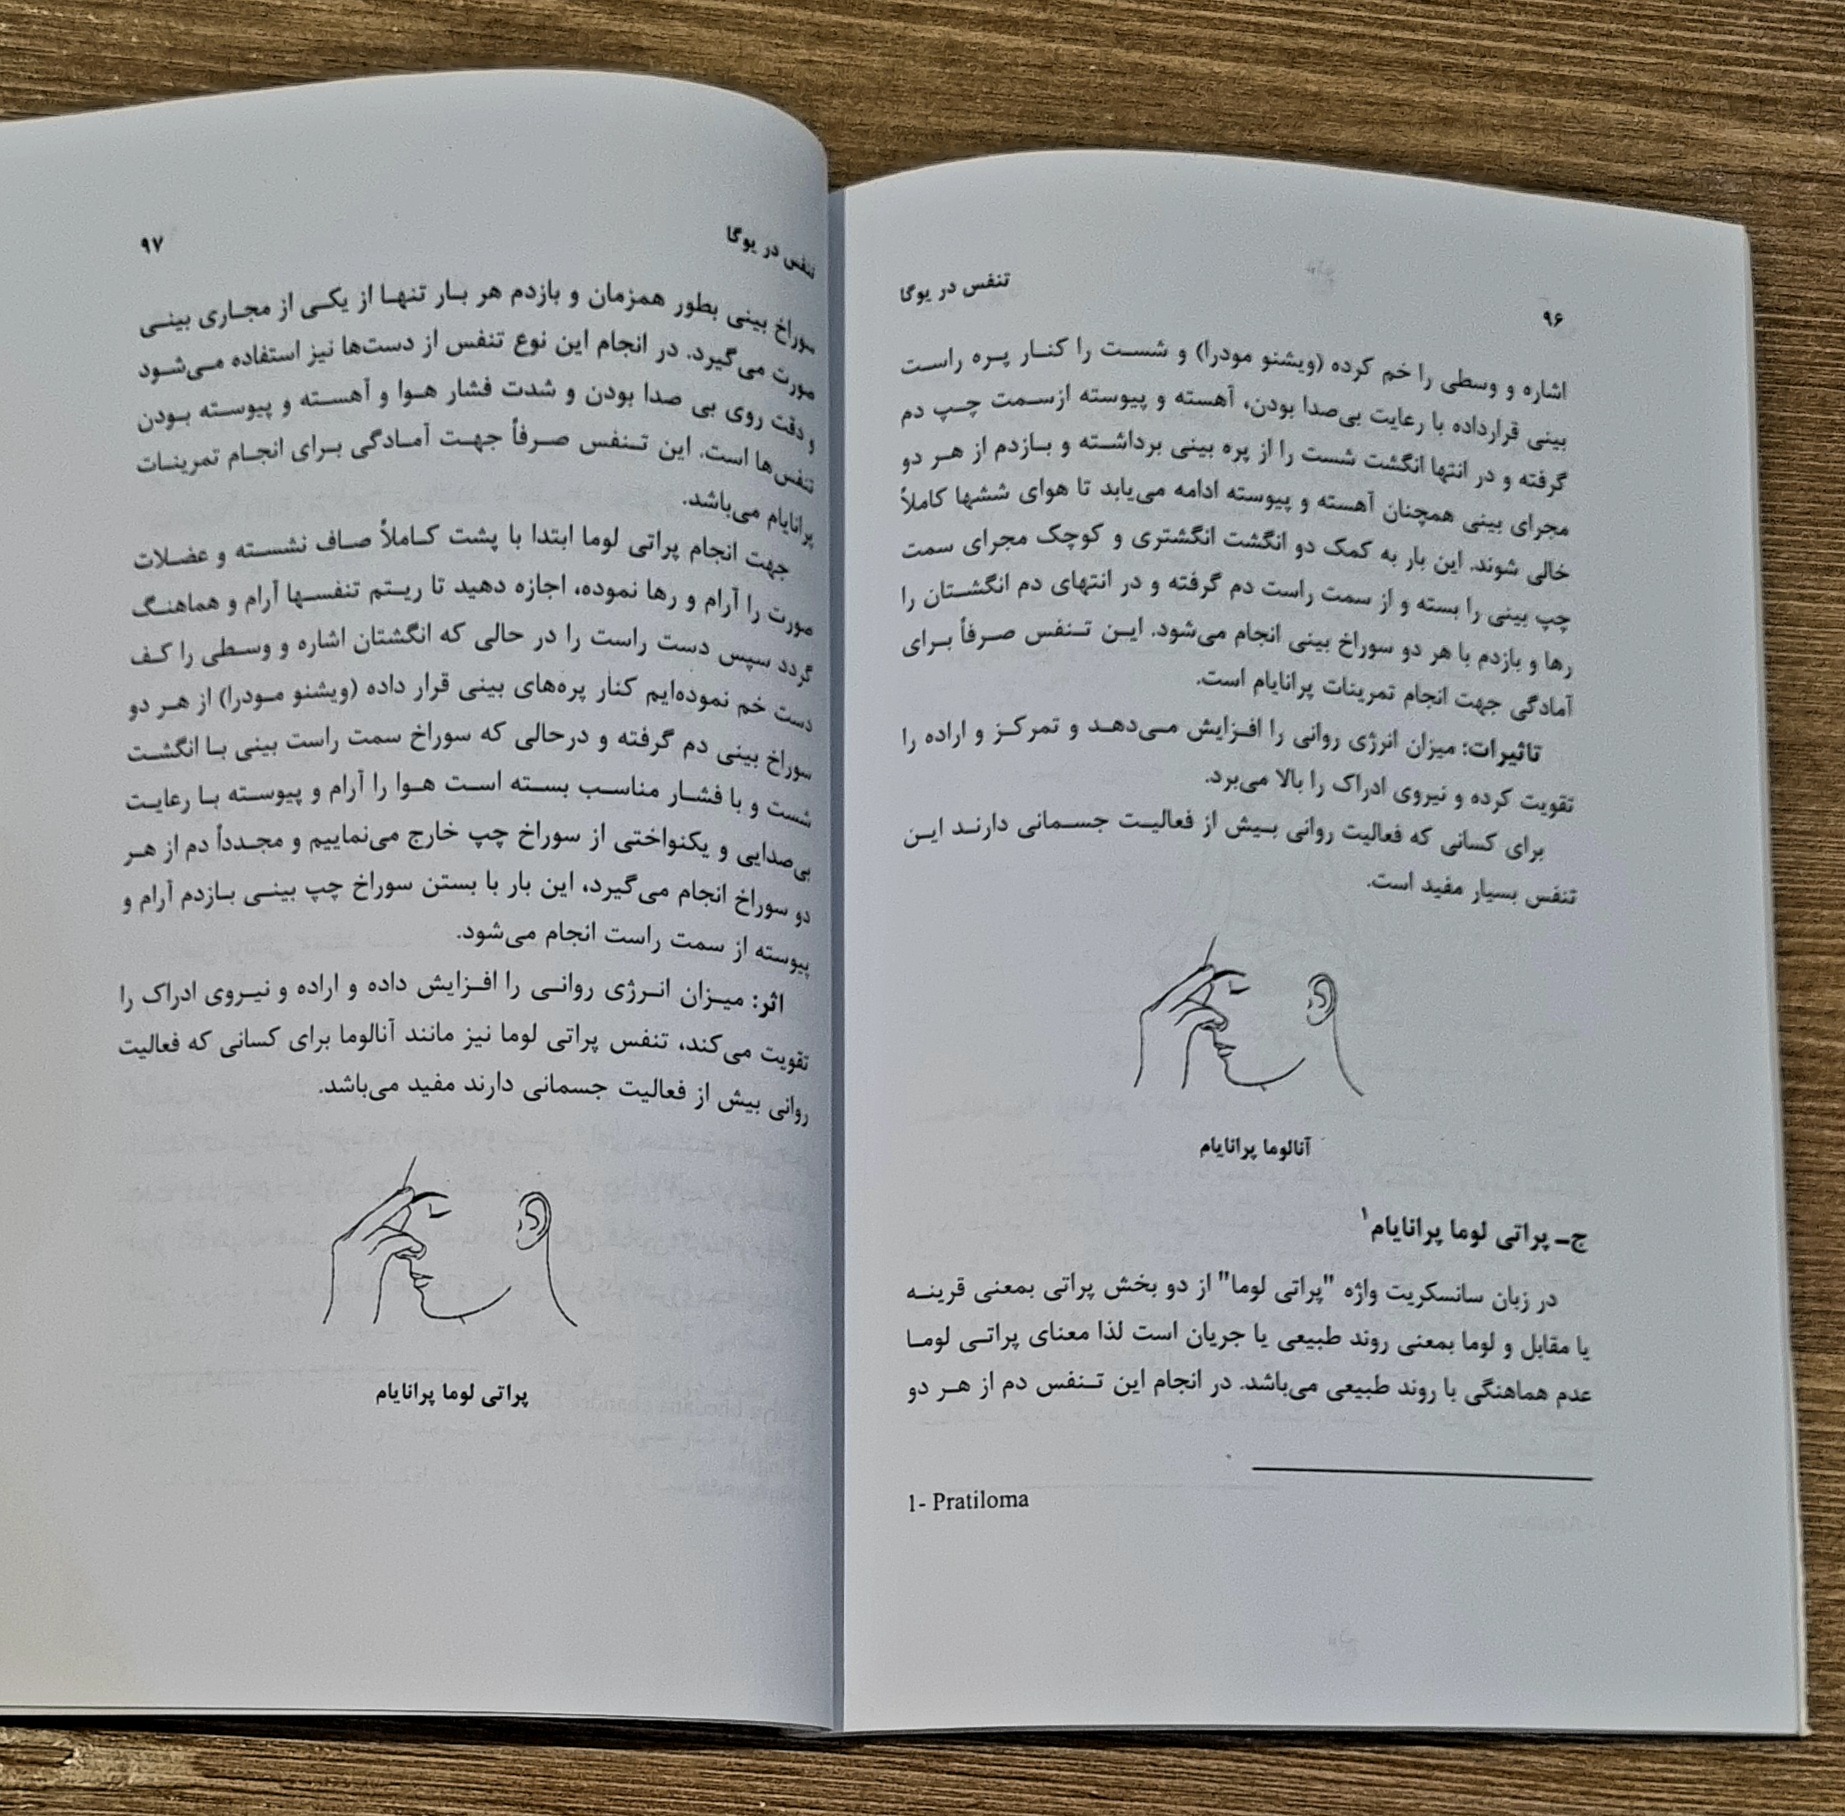 ۹۶
تنفس در یوگا
اشاره و وسطی را خم کرده (ویشنو مودرا) و شست را کنار پره راست
بینی قرارداده با رعایت بی‌صدا بودن، آهسته و پیوسته ازسمت چپ دم
گرفته و در انتها انگشت شست را از پره بینی برداشته و بازدم از هر دو
مجرای بینی همچنان آهسته و پیوسته ادامه می‌یابد تا هوای ششها کاملاً
خالی شوند. این بار به کمک دو انگشت انگشتری و کوچک مجرای سمت
چپ بینی را بسته و از سمت راست دم گرفته و در انتهای دم انگشتان را
رها و بازدم با هر دو سوراخ بینی انجام می‌شود. این تنفس صرفاً برای
آمادگی جهت انجام تمرینات پرانایام است.
تاثیرات: میزان انرژی روانی را افزایش می‌دهد و تمرکز و اراده را
تقویت کرده و نیروی ادراک را بالا می‌برد.
برای کسانی که فعالیت روانی بیش از فعالیت جسمانی دارند این
تنفس بسیار مفید است.
آنالوما پرانایام
ج- پراتی لوما پرانایام۱
در زبان سانسکریت واژه "پراتی لوما" از دو بخش پراتی بمعنی قرینه
یا مقابل و لوما بمعنی روند طبیعی یا جریان است لذا معنای پراتی لوما
عدم هماهنگی با روند طبیعی می‌باشد. در انجام این تنفس دم از هر دو
1- Pratiloma
تنفس در یوگا
۹۷
سوراخ بینی بطور همزمان و بازدم هر بار تنها از یکی از مجاری بینی
صورت می‌گیرد. در انجام این نوع تنفس از دست‌ها نیز استفاده می‌شود
و دقت روی بی صدا بودن و شدت فشار هوا و آهسته و پیوسته بودن
تنفس‌ها است. این تنفس صرفاً جهت آمادگی برای انجام تمرینات
پرانایام می‌باشد.
جهت انجام پراتی لوما ابتدا با پشت کاملاً صاف نشسته و عضلات
صورت را آرام و رها نموده، اجازه دهید تا ریتم تنفسها آرام و هماهنگ
گردد سپس دست راست را در حالی که انگشتان اشاره و وسطی را کف
دست خم نموده‌ایم کنار پره‌های بینی قرار داده (ویشنو مودرا) از هر دو
سوراخ بینی دم گرفته و درحالی که سوراخ سمت راست بینی با انگشت
شست و با فشار مناسب بسته است هوا را آرام و پیوسته با رعایت
بی‌صدایی و یکنواختی از سوراخ چپ خارج می‌نماییم و مجدداً دم از هر
دو سوراخ انجام می‌گیرد، این بار با بستن سوراخ چپ بینی بازدم آرام و
پیوسته از سمت راست انجام می‌شود.
اثر: میزان انرژی روانی را افزایش داده و اراده و نیروی ادراک را
تقویت می‌کند، تنفس پراتی لوما نیز مانند آنالوما برای کسانی که فعالیت
روانی بیش از فعالیت جسمانی دارند مفید می‌باشد.
پراتی لوما پرانایام